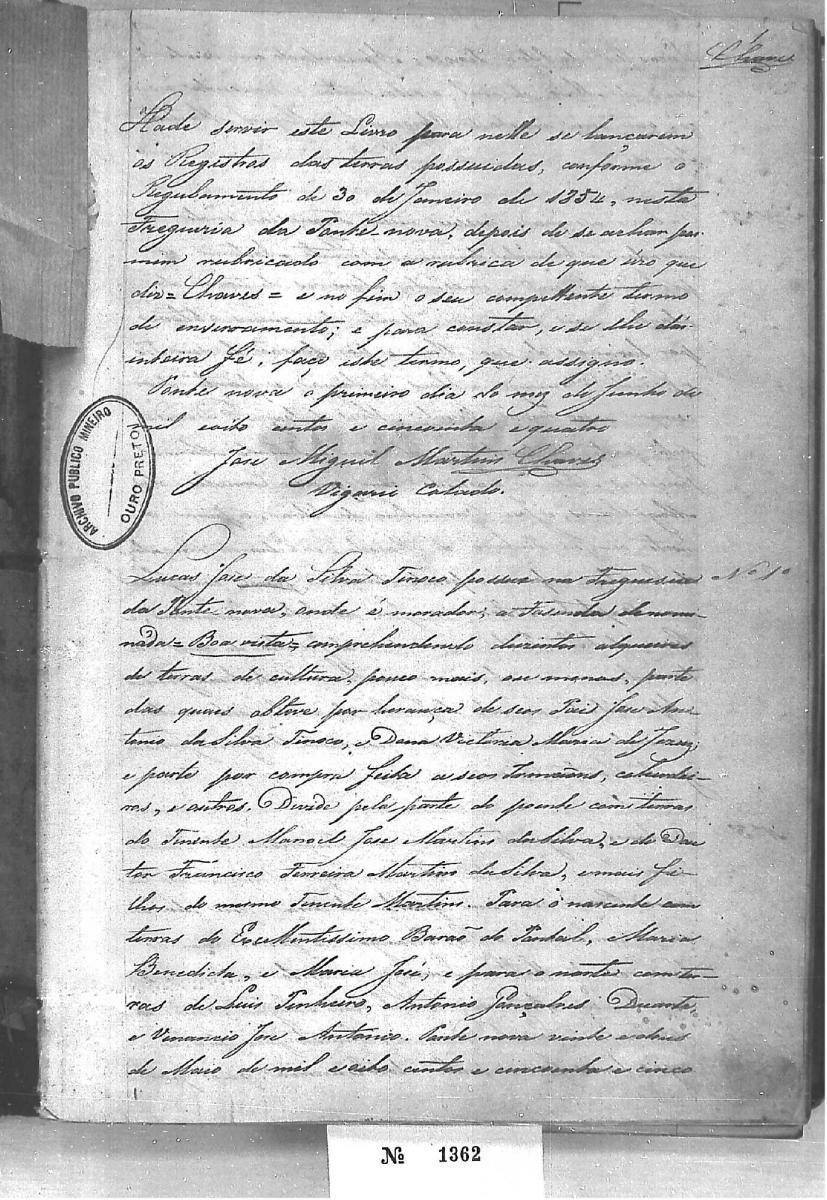 1
Chaves
Hade servir este Livro para nelle se lancarem
os Registros das terras possuidas, conforme o
Regulamento de 30 de Janeiro de 1854, nesta
Freguezia da Ponte nova, depois de se achar por
mim rubricado com a rubrica de que uzo que
diz = Chaves = e no fim o seu compettente termo
de encerramento; e para constar, e se lhe dár
inteira fé, faço este termo, que assigno.
Ponte nova o primeiro dia do mez de Junho de
mil eoito centos e cincoenta e quatro
Jose Miguel Martins Chaves
Vigario Colado.
ARCHIVO PUBLICO MINEIRO
OURO PRETO
Lucas Jose da Silva Tinoco possue na Freguesia
Nº 1º
da Ponte nova, onde é morador, a Fasenda denomi-
nada = Boa vista = comprehendendo duzentos alqueires
de terras de cultura, pouco mais, ou menos, parte
das quais obteve por herança de seos Pais Jose An-
tonio da Silva Tinoco, e Dona Victoria Maria de Jezuz;
e parte por compra feita a seos Irmaõns,
e outros. Devide pela parte do poente com terras
do Tenente Manoel Jose Martins da Silva, e do Dou
tor Francisco Ferreira Martins da Silva, e mais fi-
lhos do mesmo Tenente Martins. Para o nascente com
terras do Excellentissimo Baraõ do Pontal, Maria
Benedicta, e Maria José, e para o norte com ter-
ras de Luis Pinheiro, Antonio Gonçalves Duarte,
e Venancio Jose Antonio. Ponte nova vinte e dous
de Maio de mil e oito centos e cincoenta e cinco
Nº 1362